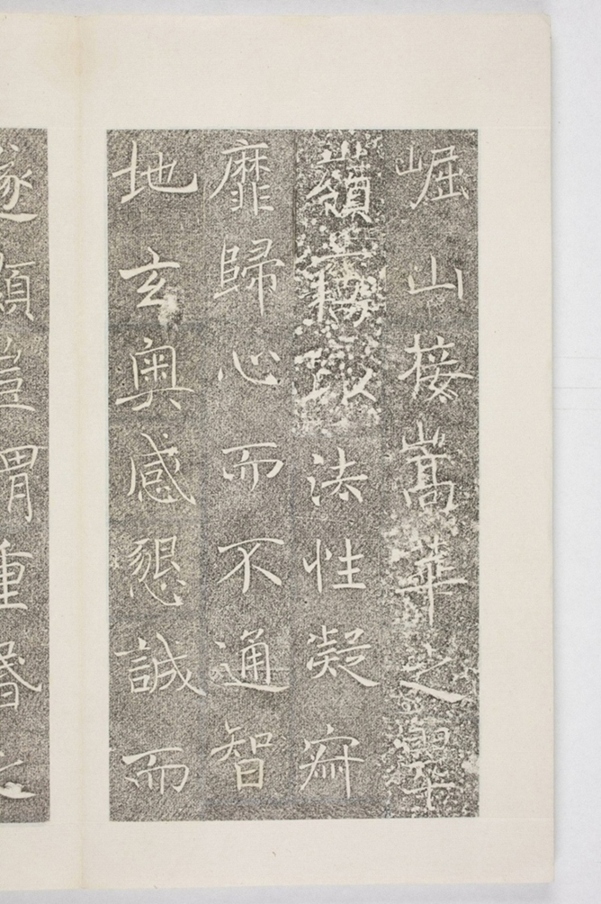 崛山接嵩華之翠
嶺竊以法性凝寂
靡歸心而不通智
地玄奧感懇誠而
遂顯豈謂重昬之